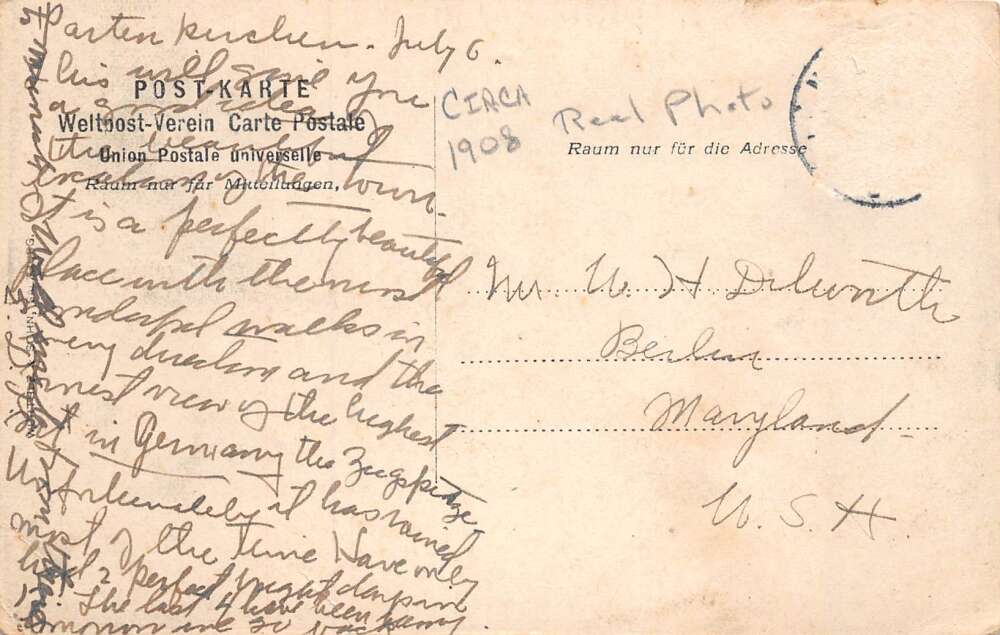 Partenkirchen. July 6.
This will give you
a good idea of
the beautiful
location of the town.
It is a perfectly beautiful
place with the most
wonderful walks in
every direction and the
finest view of the highest
mt in Germany the Zugspitze
Unfortunately it has rained
most of the time Have only
had 2 perfect bright days in
The last 4 have been rainy
we go back
POST-KARTE
Weltpost-Verein Carte Postale
Union Postale universelle
Raum nur für Mitteilungen.
CIRCA
1908
Real Photo
Raum nur für die Adresse
Mr. U. H Dilworth
Berlin
Maryland
U. S. A